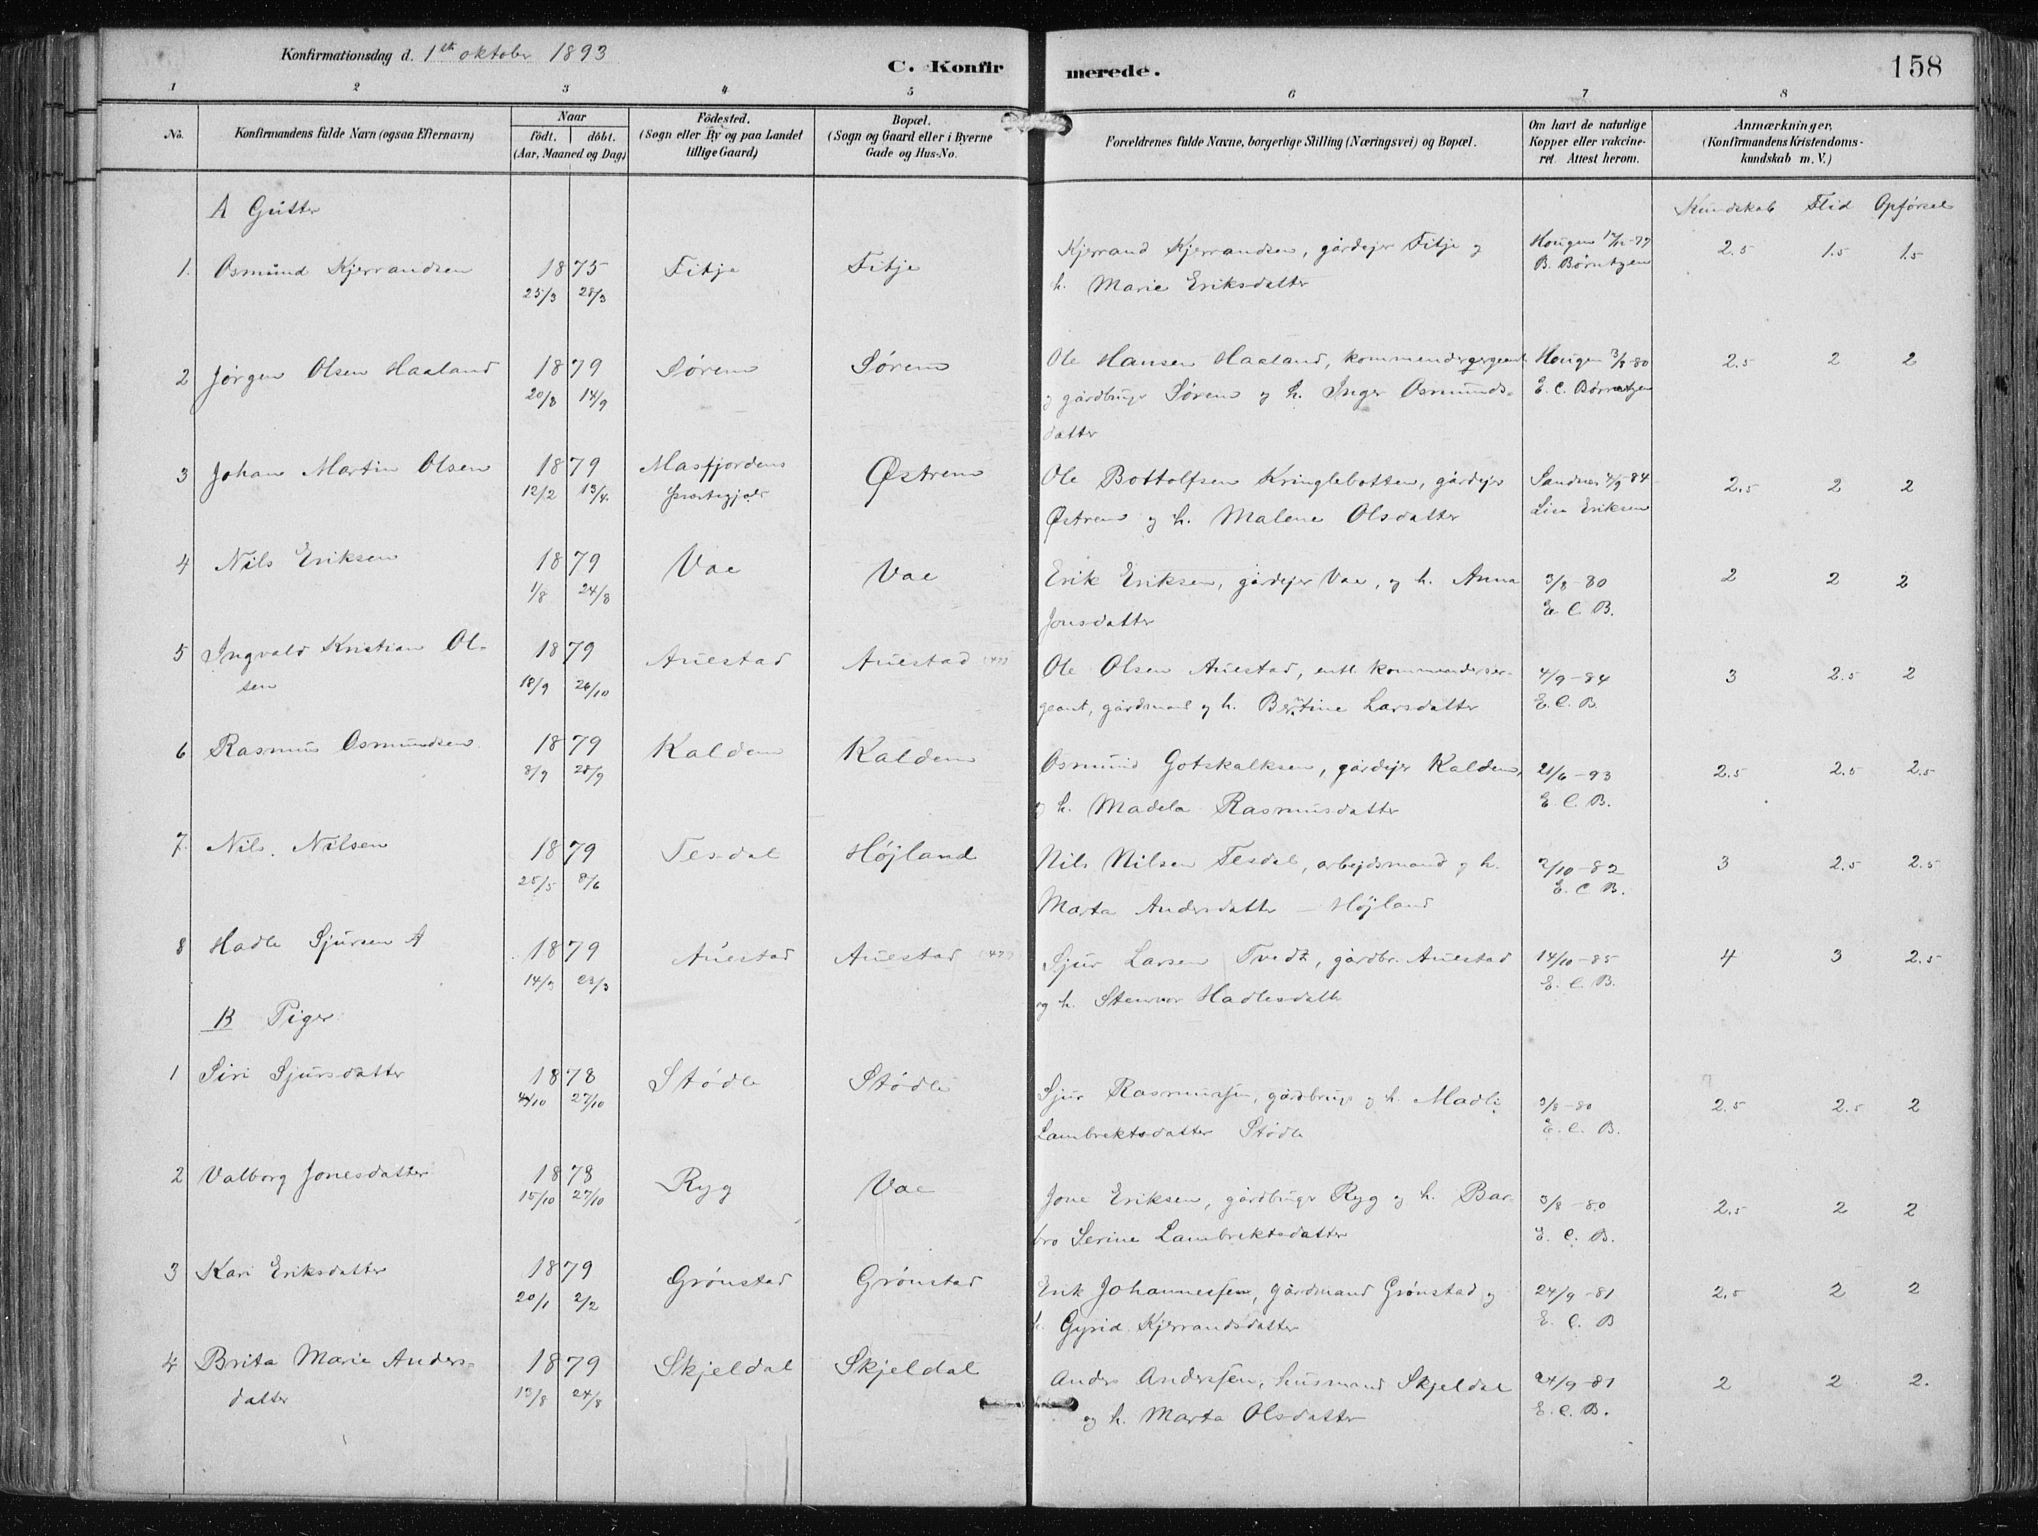 Konfirmationsdag d. 1ste oktober 1893
C. Konfirmerede.
158
1 2 3 4 5 6 7 8
No.
Konfirmandens fulde Navn (ogsaa Efternavn)
Naar
födt. döbt.
(Aar, Maaned og Dag)
Födested.
(Sogn eller By og paa Landet
tillige Gaard)
Bopæl.
(Sogn og Gaard eller i Byerne
Gade og Hus-No.
Forældrenes fulde Navne, borgerlige Stilling (Næringsvei) og Bopæl.
Om havt de naturlige
Kopper eller vakcine-
ret. Attest herom.
Anmærkninger.
(Konfirmandens Kristendoms-
kundskab m. V.)
A Gutter
Kundskab Flid Opførsel
1. Osmund Kjerrandsen 1875 Fitje Fitje Kjerrand Kjerrandsen, gårdejer Fitje og Hougen 2.5 1.5 1.5
25/3 28/3 h. Marie Eriksdatter B. Børntzen
2 Jørgen Olsen Haaland 1879 Sørem Sørem Ole Hansen Haaland, kommandersergeant Hougen 3/8 80 2.5 2 2
20/8 14/9 og gårdbruger Sørem og h. Inger Osmunds- E. C. Børntzen
datter
3 Johan Martin Olsen 1879 Masfjordens Østrem Ole Bottolfsen Kringlebotten, gårdejer Sandnes 4/9-84 2.5 2 2
12/2 13/4. præstegjæld Østrem og h. Malene Olsdatter Lise Eriksen
4 Nils Eriksen 1879 Vae Vae Erik Eriksen, gårdejer Vae, og h. Anna 3/8-80 2 2 2
1/8 24/8 Jonsdatter E. C. B.
5 Ingvald Kristian Ol- 1879 Auestad Auestad Ole Olsen Auestad, entl. kommanderser- 4/9-84 3 2.5 2
sen 18/9 26/10 geant, gårdmand og h. Berntine Larsdatter E. C. B.
6 Rasmus Osmundsen 1879 Kaldem Kaldem Osmund Gotskalksen, gårdejer Kaldem, 21/6-93 2.5 2.5 2.5
8/9 28/9 og h. Madela Rasmusdatter E. C. B.
7. Nils Nilsen 1879 Tesdal Højland Nils Nilsen Tesdal, arbejdsmand og h. 2/10-82 3 2.5 2.5
25/5 8/6 Marta Andersdatter – Højland E. C. B.
8 Hadle Sjursen A 1879 Auestad Auestad Sjur Larsen Tvedt, gårdbr. Auestad 14/10-85 4 3 2.5
14/3 23/3 og h. Stenvor Hadlesdatter E. C. B.
B Piger
1 Siri Sjursdatter 1878 Stødle Stødle Sjur Rasmussen, gårdbruger og h. Madli 3/8-80 2.5 2.5 2
27/10 Lambrektsdatter Stødle E. C. B.
2 Valborg Jonesdatter 1878 Ryg Vae Jone Eriksen, gårdbruger Ryg og h. Bar- 3/8-80 2.5 2 2
15/10 27/10 bro Serine Lambrektsdatter E. C. B.
3 Kari Eriksdatter 1879 Grønstad Grønstad Erik Johannessen, gårdmand Grønstad og 24/9-81 2.5 2 2
20/1 2/2 h. Gyrid Kjerrandsdatter E. C. B
4 Brita Marie Anders- 1879 Skjeldal Skjeldal Anders Anderssen, husmand Skjeldal 24/9-81 2 2 2.
datter 13/8 24/8 og h. Marta Olsdatter E. C. B.